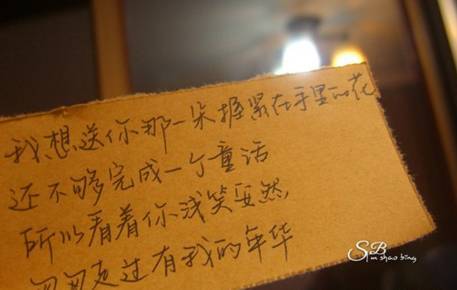 我想送你那一朵握紧在手里的花
还不够完成一个童话
所以看着你浅笑安然,
匆匆走过有我的年华
SB
Sun shao bing